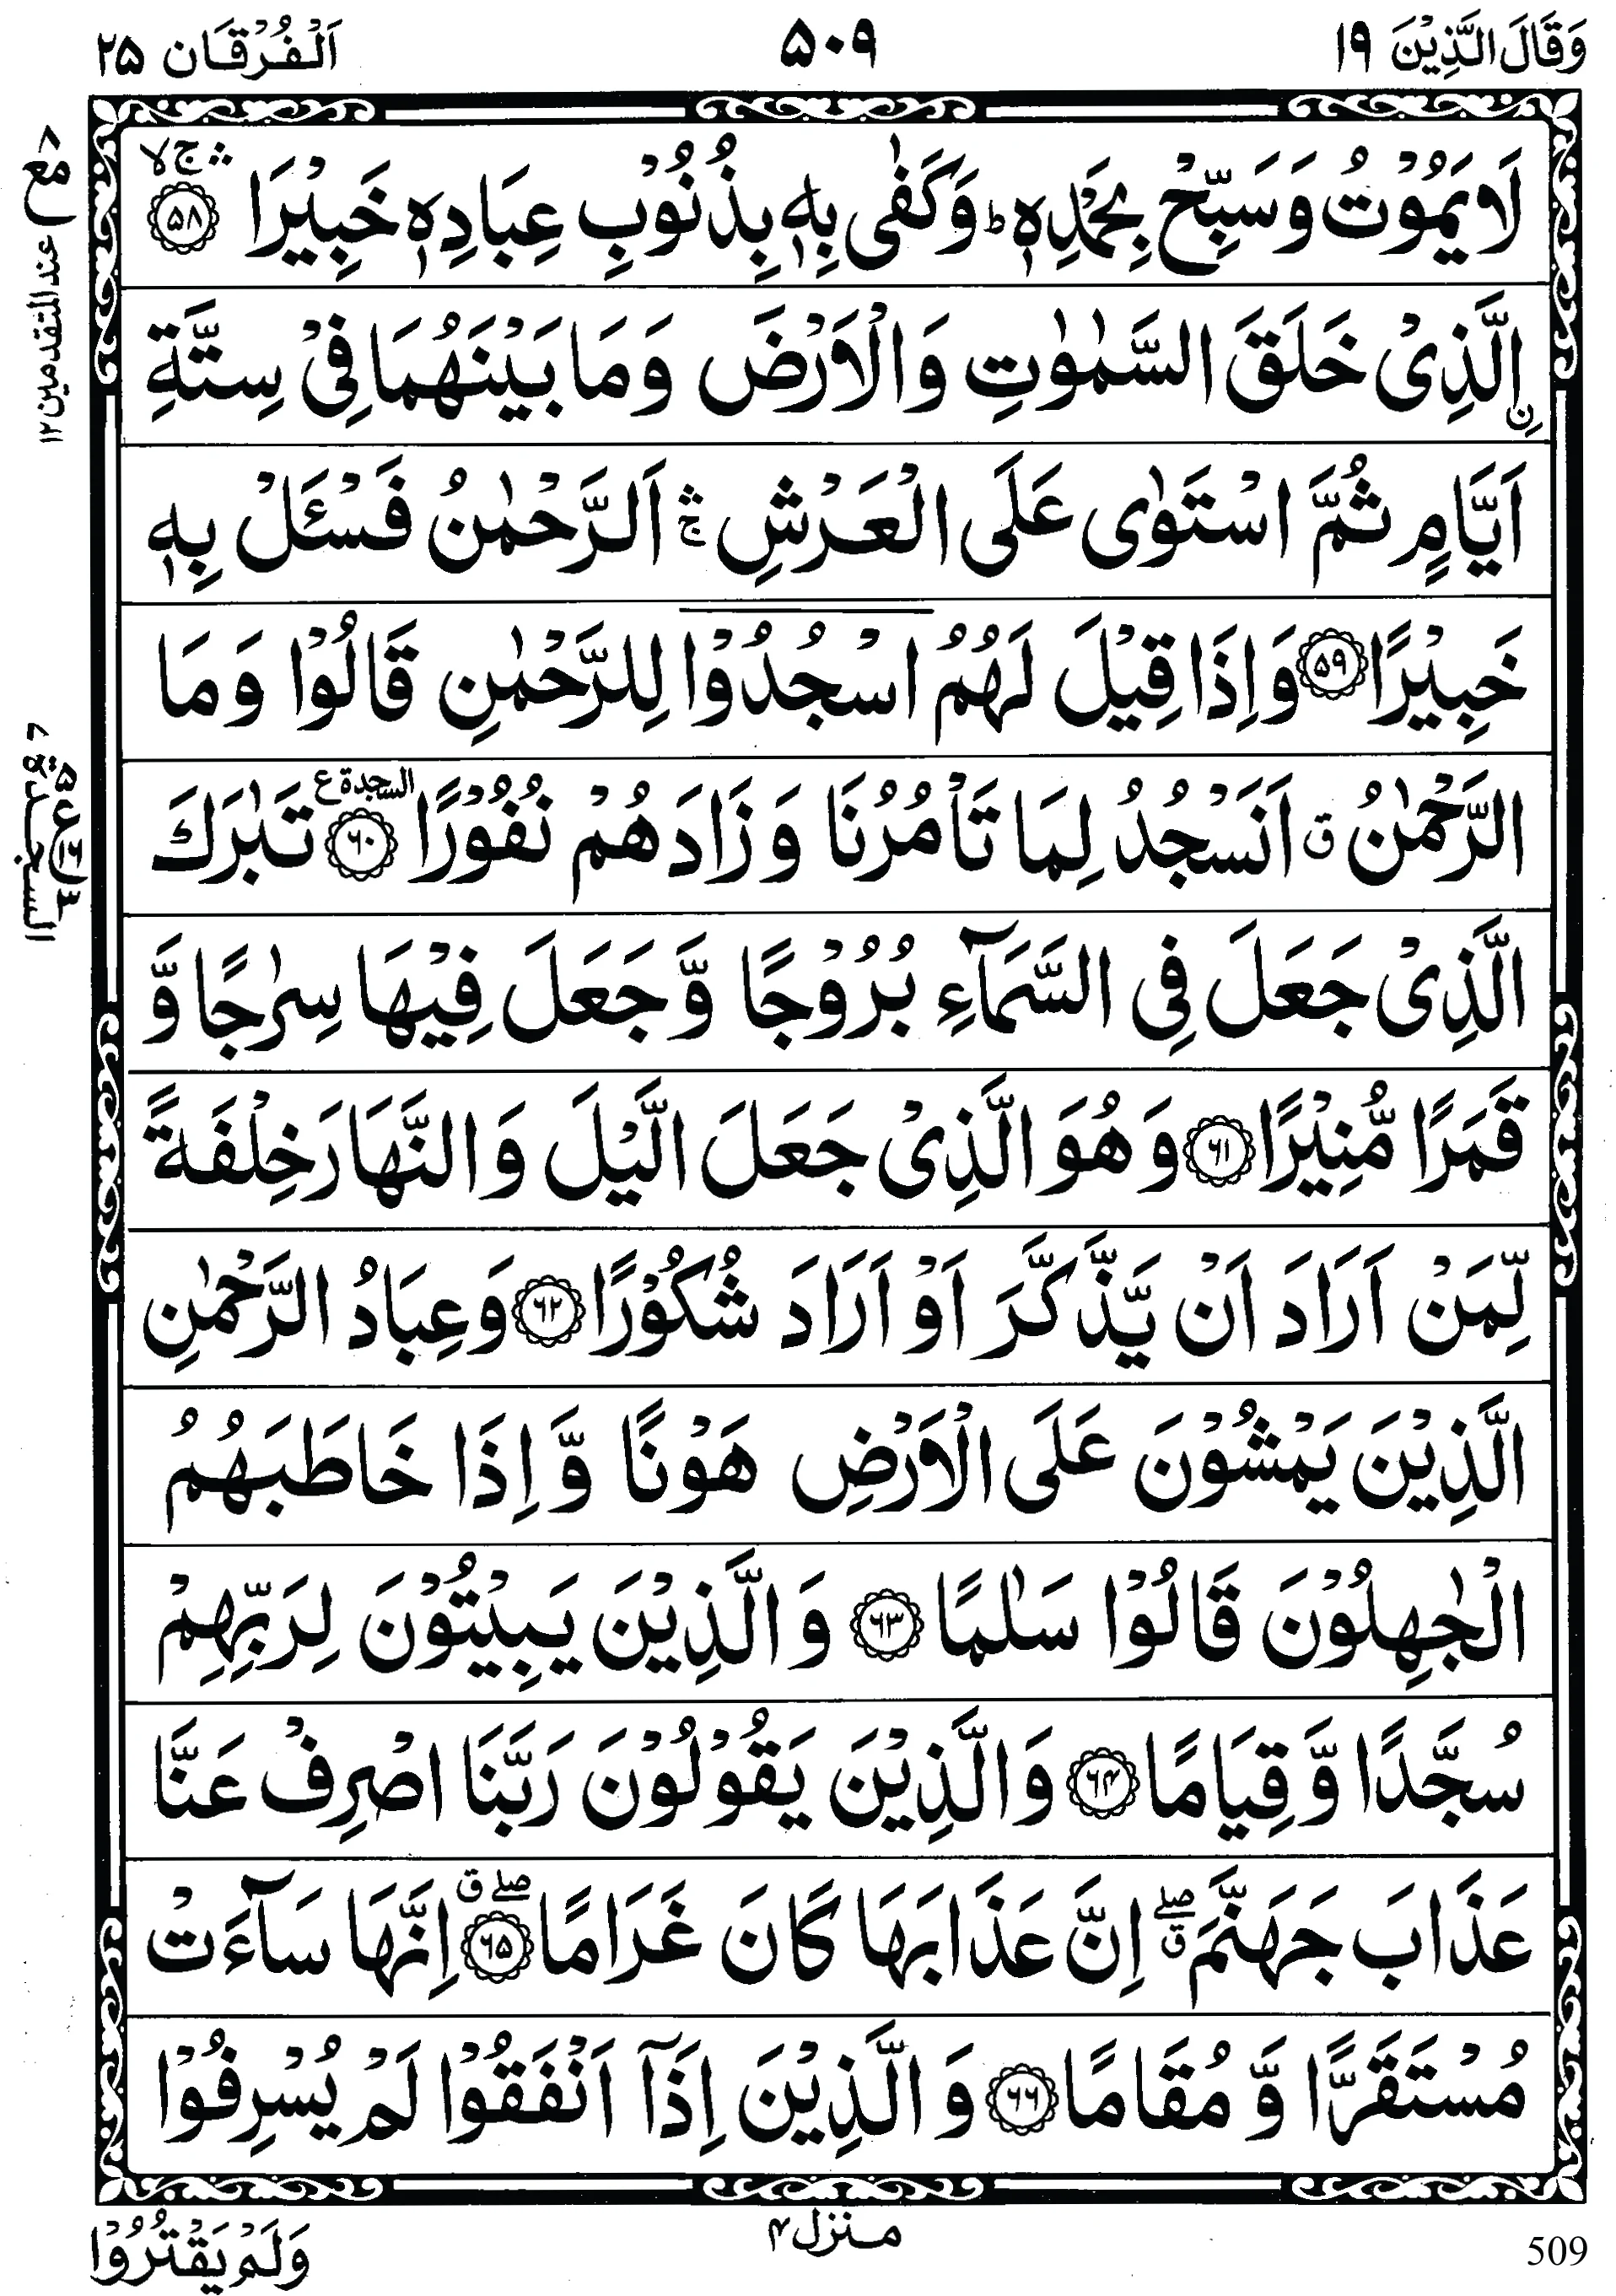 وَقَالَ الَّذِيْنَ ١٩
۵۰۹
اَلْفُرْقَان ٢۵
لَا يَمُوْتُ وَسَبِّحْ بِحَمْدِهٖ ؕ وَكَفٰى بِهٖ بِذُنُوْبِ عِبَادِهٖ خَبِيْرَا ۛۚ ۙ ﴿۵۸﴾
اِ۟لَّذِىْ خَلَقَ السَّمٰوٰتِ وَالْاَرْضَ وَمَا بَيْنَهُمَا فِىْ سِتَّةِ
اَيَّامٍ ثُمَّ اسْتَوٰى عَلَى الْعَرْشِ ۛۚ اَلرَّحْمٰنُ فَسْئَلْ بِهٖ
خَبِيْرًا ﴿۵۹﴾ وَاِذَا قِيْلَ لَهُمُ اسْجُدُوْا لِلرَّحْمٰنِ قَالُوْا وَمَا
الرَّحْمٰنُ ق اَنَسْجُدُ لِمَا تَاْمُرُنَا وَزَادَهُمْ نُفُوْرًا السجدة ع ﴿۶۰﴾ تَبٰرَكَ
الَّذِىْ جَعَلَ فِى السَّمَآءِ بُرُوْجًا وَّجَعَلَ فِيْهَا سِرٰجًا وَّ
قَمَرًا مُّنِيْرًا ﴿۶۱﴾ وَهُوَ الَّذِىْ جَعَلَ الَّيْلَ وَالنَّهَارَ خِلْفَةً
لِّمَنْ اَرَادَ اَنْ يَّذَّكَّرَ اَوْ اَرَادَ شُكُوْرًا ﴿۶۲﴾ وَعِبَادُ الرَّحْمٰنِ
الَّذِيْنَ يَمْشُوْنَ عَلَى الْاَرْضِ هَوْنًا وَّاِذَا خَاطَبَهُمُ
الْجٰهِلُوْنَ قَالُوْا سَلٰمًا ﴿۶۳﴾ وَالَّذِيْنَ يَبِيْتُوْنَ لِرَبِّهِمْ
سُجَّدًا وَّقِيَامًا ﴿۶۴﴾ وَالَّذِيْنَ يَقُوْلُوْنَ رَبَّنَا اصْرِفْ عَنَّا
عَذَابَ جَهَنَّمَ صلے ق اِنَّ عَذَابَهَا كَانَ غَرَامًا صلے ق ﴿۶۵﴾ اِنَّهَا سَآءَتْ
مُسْتَقَرًّا وَّمُقَامًا ﴿۶۶﴾ وَالَّذِيْنَ اِذَآ اَنْفَقُوْا لَمْ يُسْرِفُوْا
مع عند المتقدمين ١٢
السجدة
منزل ۴
وَلَمْ يَقْتُرُوْا
509